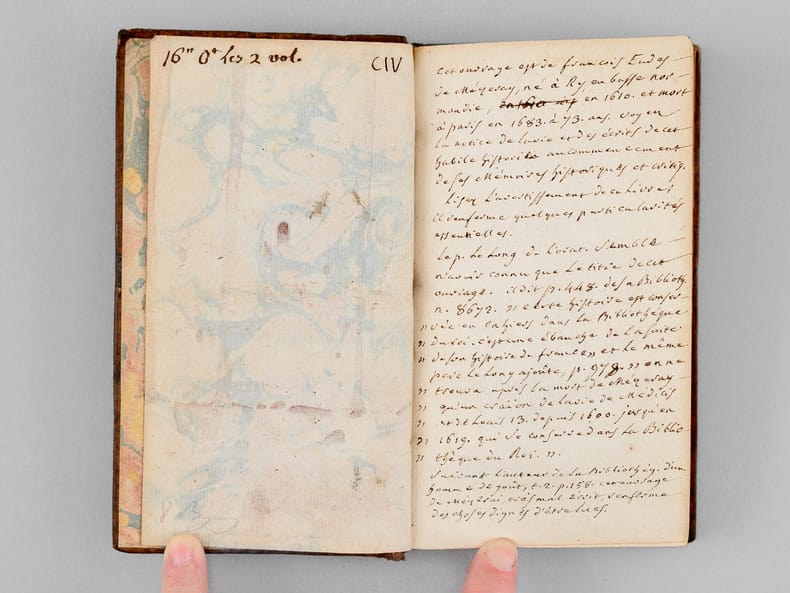 16" 0° les 2 vol.
CIV
cet ouvrage est de francois Eudes
de Mézeray, né à Ry, en basse nor-
mandie, en 1610. et mort
à paris en 1683. à 73. ans. voy en
la notice de la vie et des écrits de cet
habile historien au commencement
de ses Mémoires historiques et critiq.
Lisez l'avertissement de ce Livre,
il renferme quelques particularités
essentielles.
Le p. Le Long de l'orat. semble
n'avoir connu que le titre de cet
ouvrage. il dit p. 448. de sa Biblioth.
n. 8672. " cette histoire est conser-
" vée en cahiers dans la Bibliotheque
" du roi. c'est une ébauche de la suite
" de son histoire de france " et le même
pere le Long ajoûte, p. 979. " on ne
" trouva après la mort de Mézeray
" qu'un craïon de la vie de Médicis
" et de Louis 13. depuis 1600. jusqu'en
" 1619. qui se conserve dans la Biblio-
" thèque du Roi. ".
suivant l'auteur de la Bibliothéq. d'un
homme de goût, t. 2. p. 158. cet ouvrage
de Mézerai, très mal écrit, renferme
des choses dignes d'être lues.